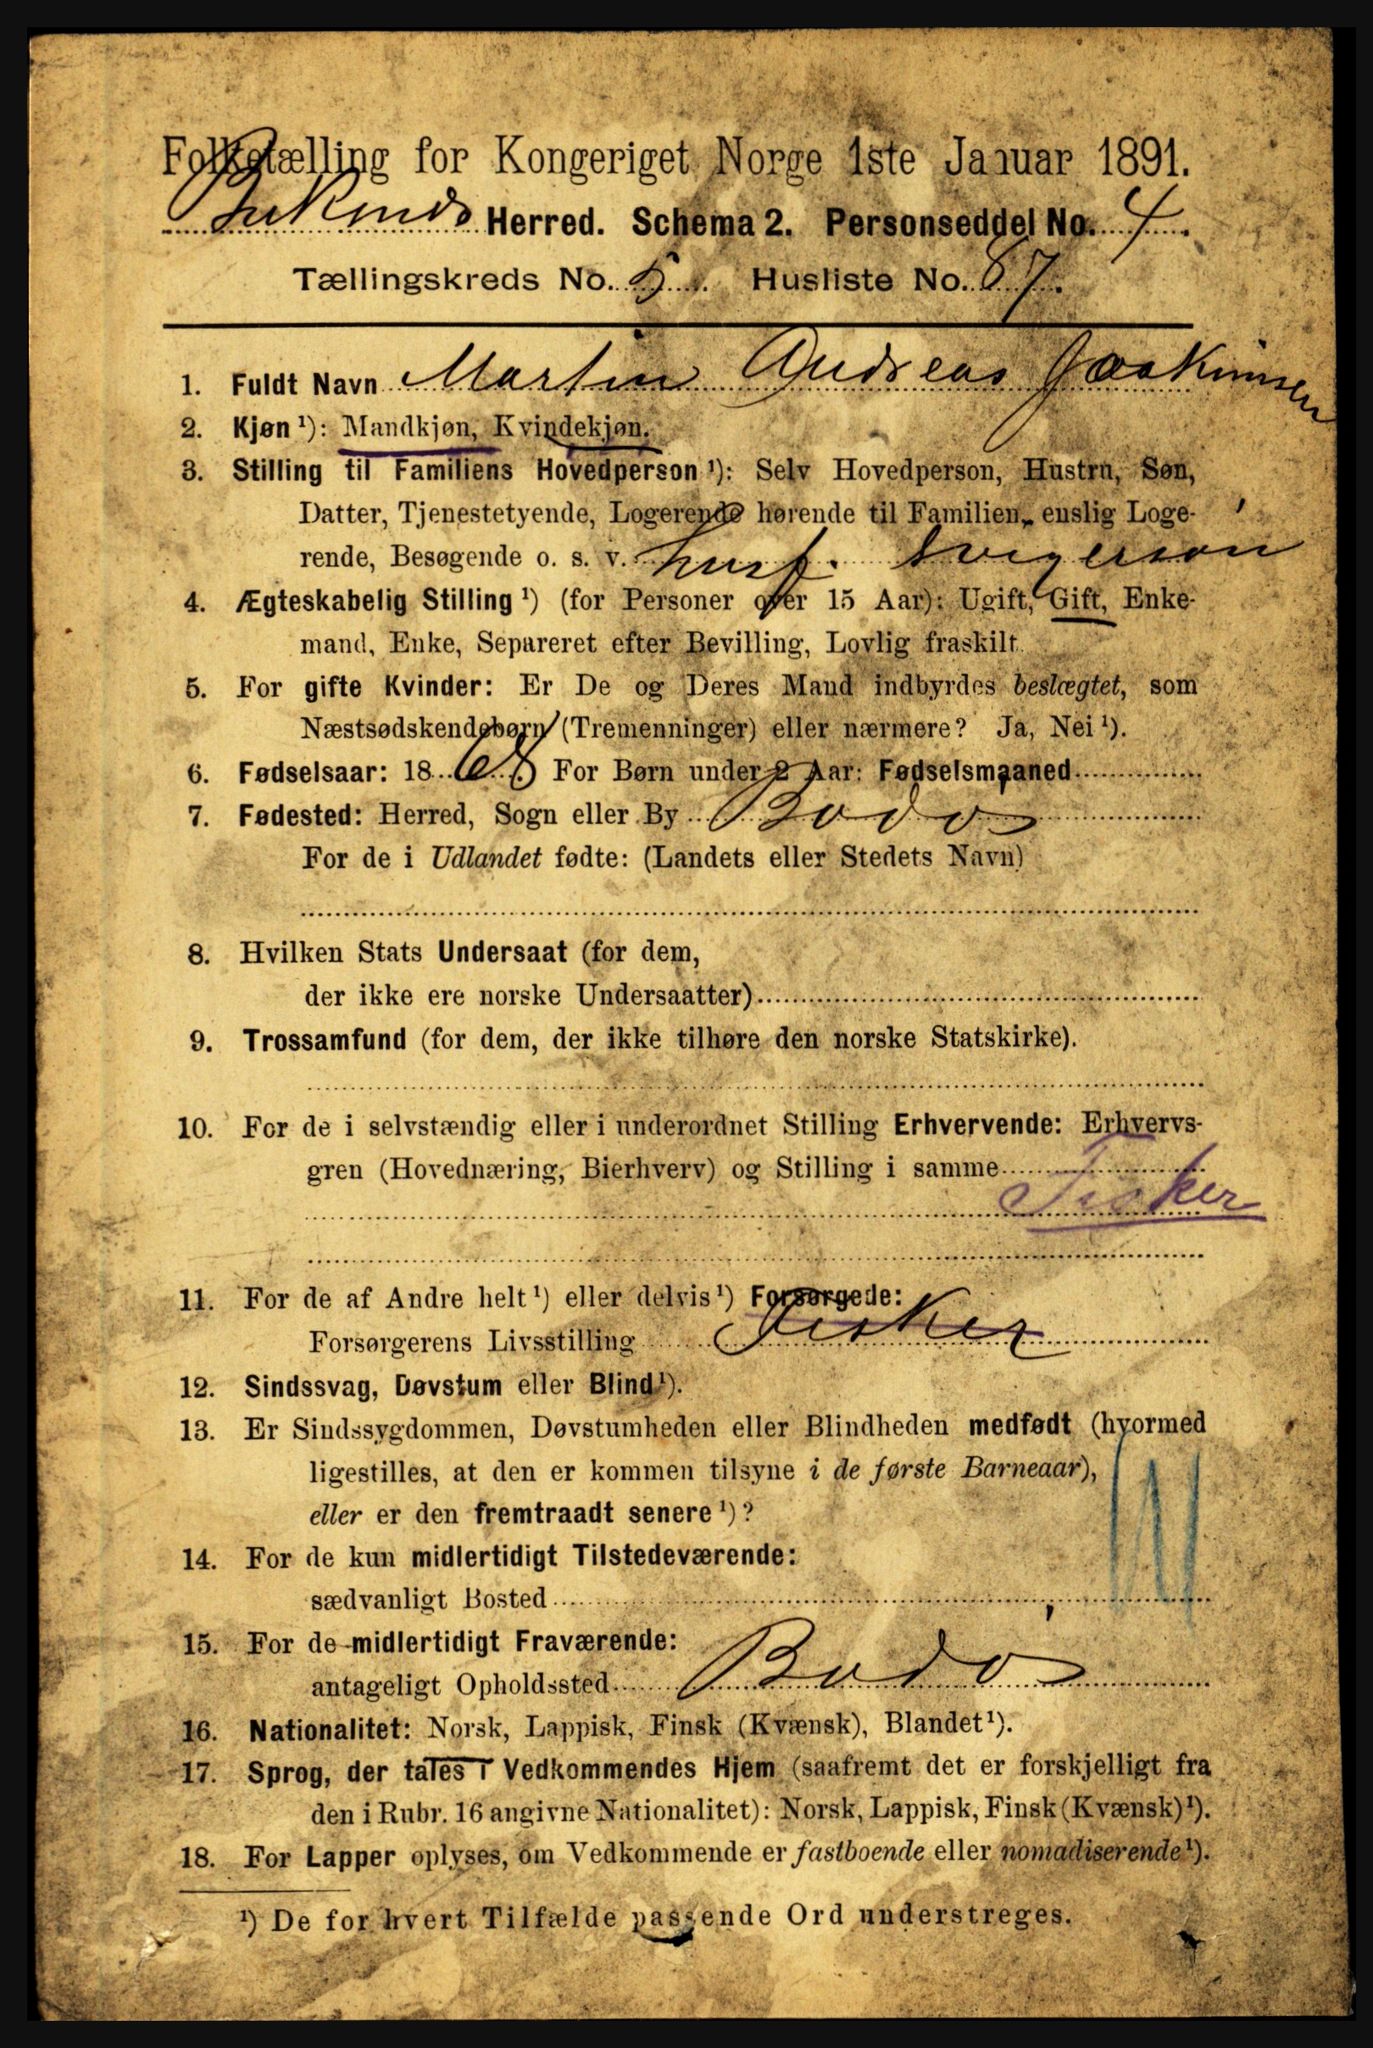 Folketælling for Kongeriget Norge 1ste Januar 1891.
Herred. Schema 2. Personseddel No. 4.
Tællingskreds No. 5. Husliste No. 87.
1. Fuldt Navn Martin Andreas Joakimsen
2. Kjøn ¹): Mandkjøn, Kvindekjøn.
3. Stilling til Familiens Hovedperson ¹): Selv Hovedperson, Hustru, Søn,
Datter, Tjenestetyende, Logerende hørende til Familien, enslig Loge-
rende, Besøgende o. s. v. husf. svigersøn
4. Ægteskabelig Stilling ¹) (for Personer over 15 Aar): Ugift, Gift, Enke-
mand, Enke, Separeret efter Bevilling, Lovlig fraskilt.
5. For gifte Kvinder: Er De og Deres Mand indbyrdes beslægtet, som
Næstsødskendebørn (Tremenninger) eller nærmere? Ja, Nei ¹).
6. Fødselsaar: 1868. For Børn under 2 Aar: Fødselsmaaned
7. Fødested: Herred, Sogn eller By Bodø
For de i Udlandet fødte: (Landets eller Stedets Navn)
8. Hvilken Stats Undersaat (for dem,
der ikke ere norske Undersaatter)
9. Trossamfund (for dem, der ikke tilhøre den norske Statskirke).
10. For de i selvstændig eller i underordnet Stilling Erhvervende: Erhvervs-
gren (Hovednæring, Bierhverv) og Stilling i samme
Fisker
11. For de af Andre helt ¹) eller delvis ¹) Forsørgede:
Forsørgerens Livsstilling Fisker
12. Sindssvag, Døvstum eller Blind ¹).
13. Er Sindssygdommen, Døvstumheden eller Blindheden medfødt (hvormed
ligestilles, at den er kommen tilsyne i de første Barneaar),
eller er den fremtraadt senere ¹)?
14. For de kun midlertidigt Tilstedeværende:
sædvanligt Bosted
15. For de midlertidigt Fraværende:
antageligt Opholdssted Bodø
16. Nationalitet: Norsk, Lappisk, Finsk (Kvænsk), Blandet ¹).
17. Sprog, der tales i Vedkommendes Hjem (saafremt det er forskjelligt fra
den i Rubr. 16 angivne Nationalitet): Norsk, Lappisk, Finsk (Kvænsk) ¹).
18. For Lapper oplyses, om Vedkommende er fastboende eller nomadiserende ¹).
¹) De for hvert Tilfælde passende Ord understreges.